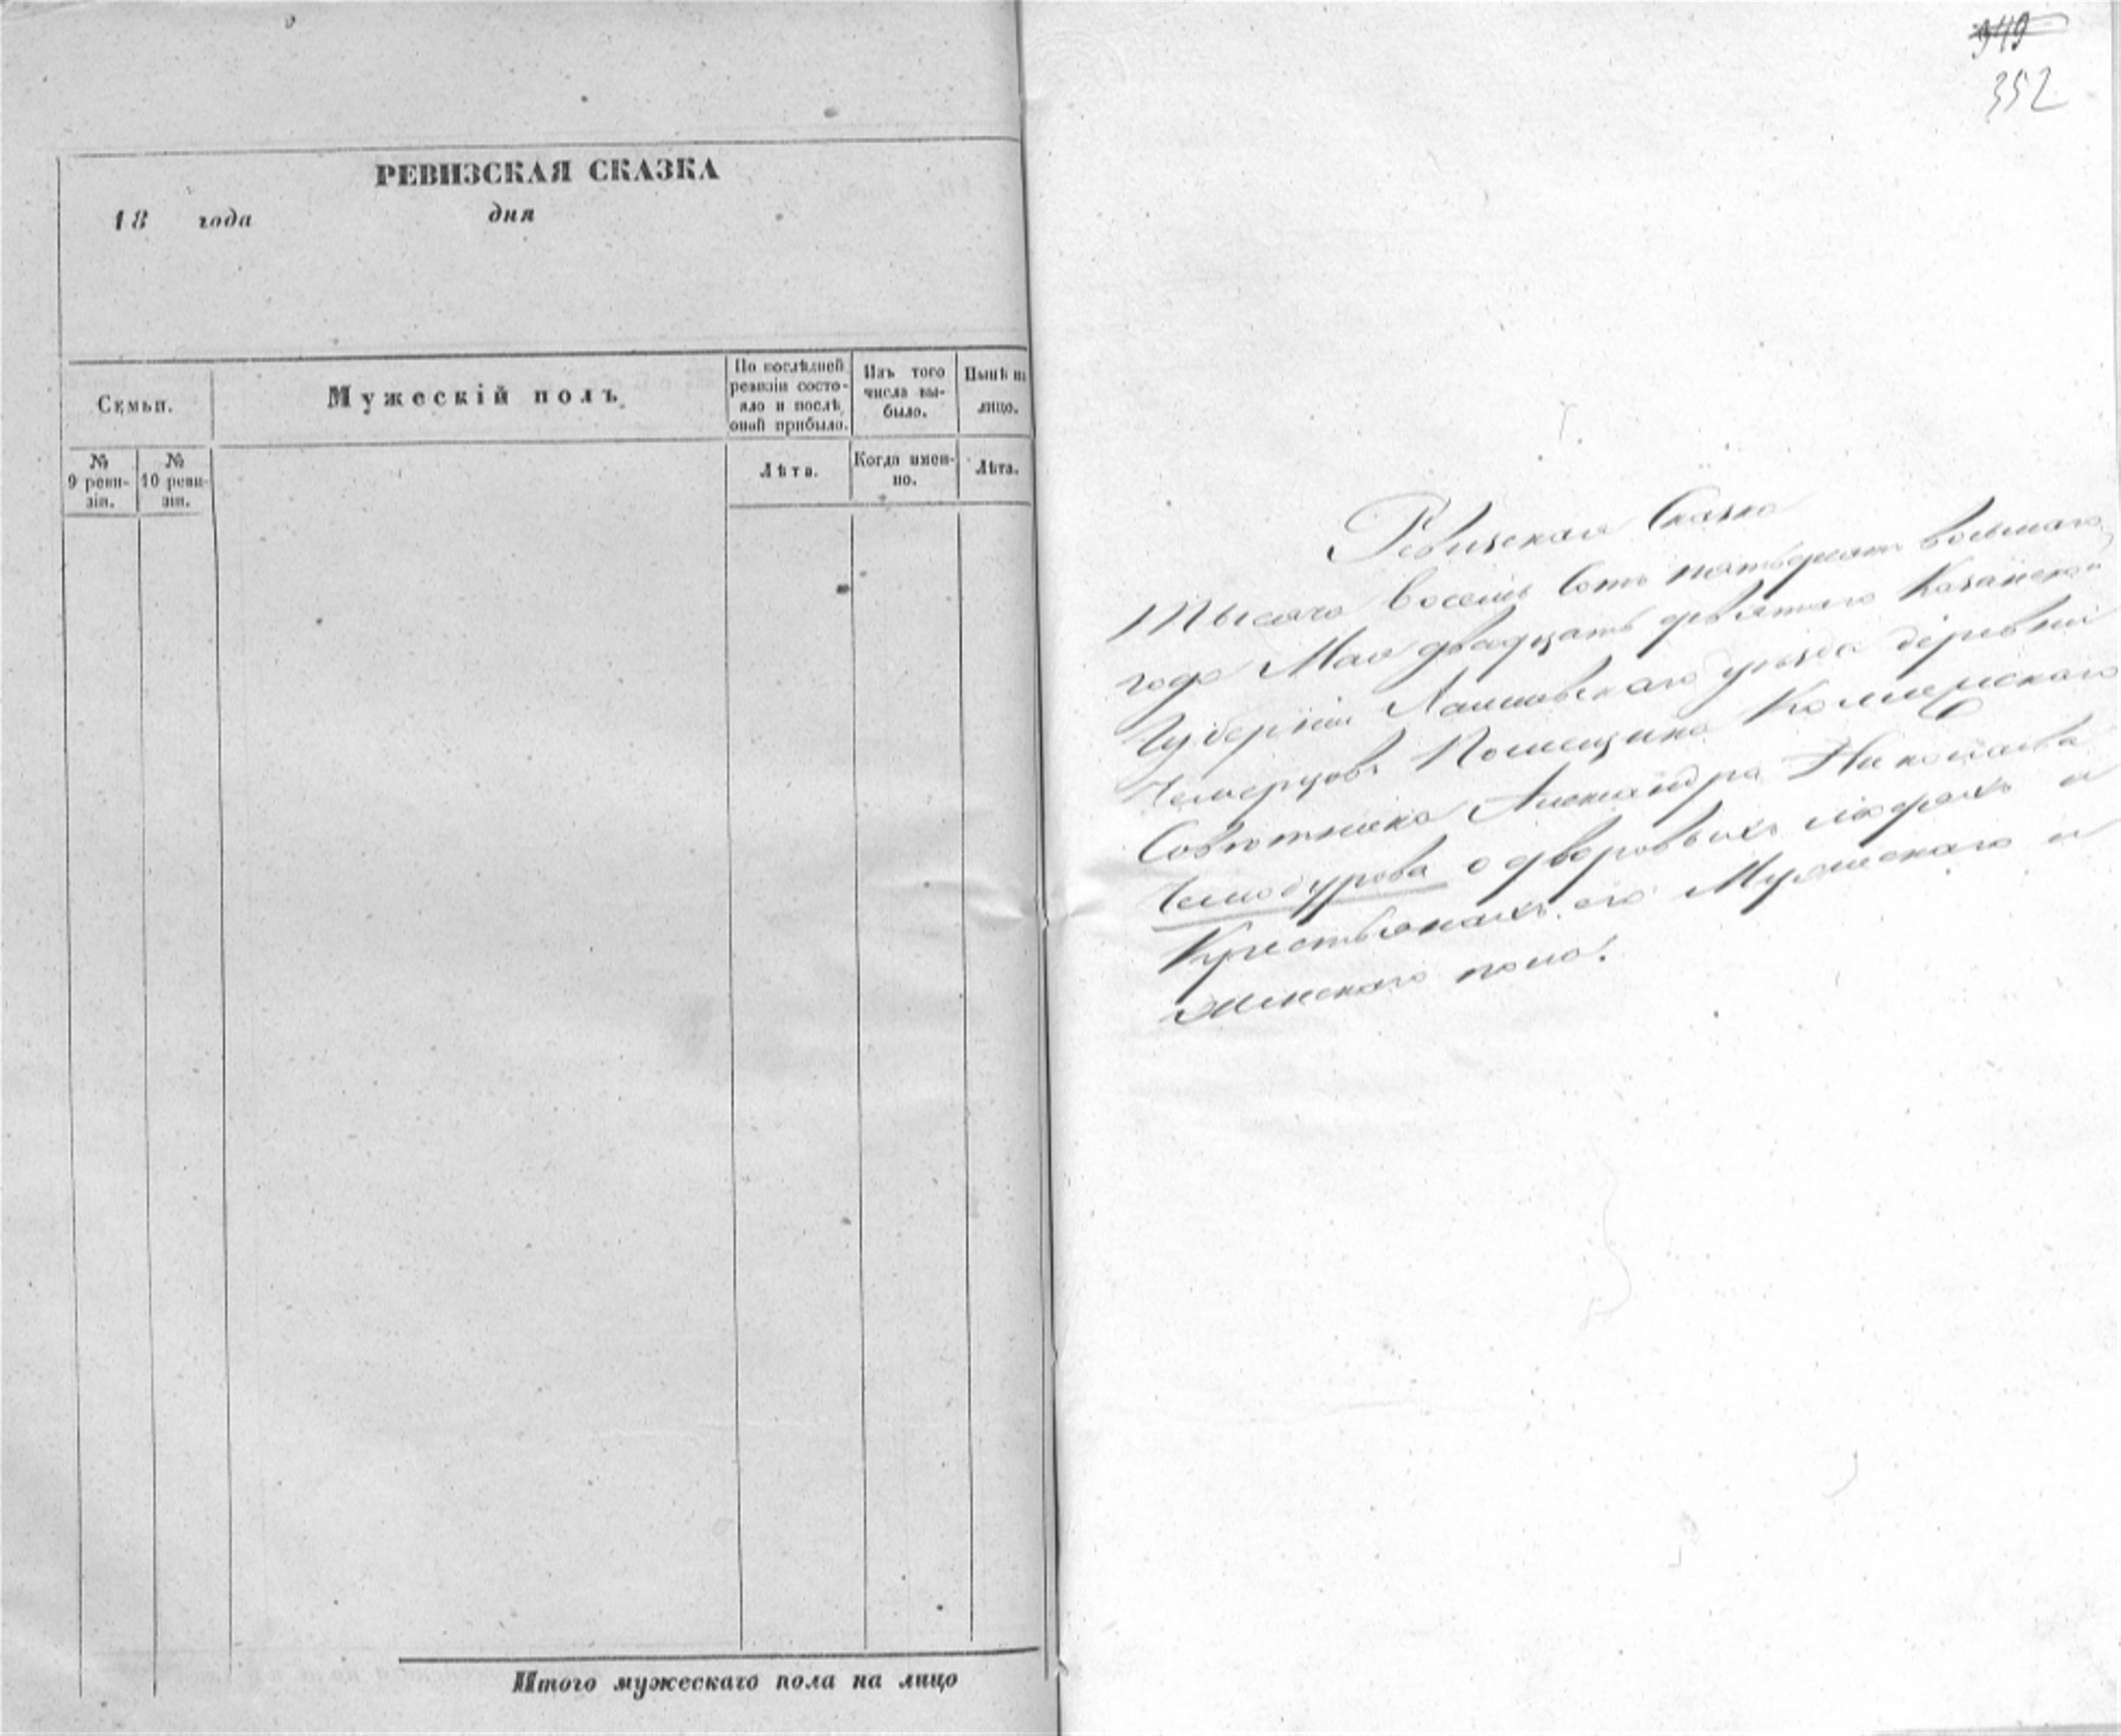 РЕВИЗСКАЯ СКАЗКА
18 года дня
Семьи.
Мужескій полъ.
По послѣдней ревизіи состояло и послѣ оной прибыло.
Изъ того числа выбыло.
Нынѣ на лицо.
№ 9 ревизіи.
№ 10 ревизіи.
Лѣта.
Когда именно.
Лѣта.
Итого мужескаго пола на лицо
349
352
Ревизская Сказка
Тысяча восемь сотъ пятьдесятъ восьмаго
года Мая двадцать девятаго Казанской
Губерніи Лаишевскаго уѣзда деревни
Чемерцовъ Помещика Коллежскаго
Совѣтника Александра Николаева
Чемодурова о дворовыхъ людяхъ и
Крестьянахъ его Мужескаго и
Женскаго пола.